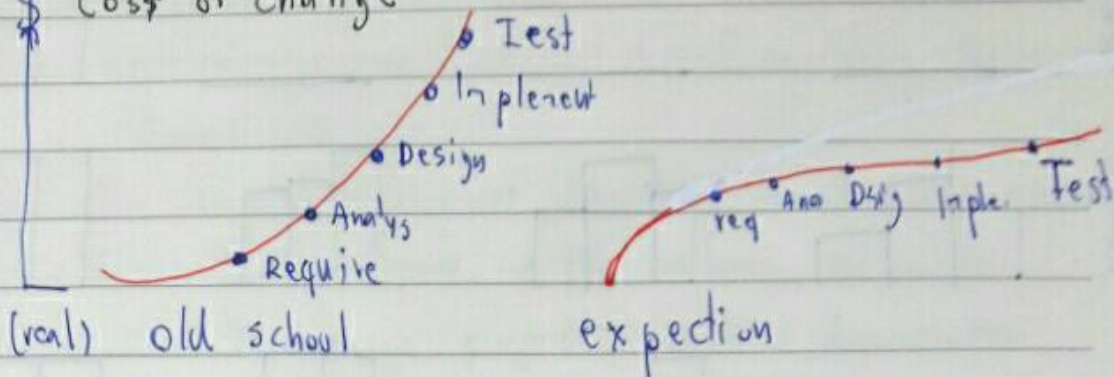 $ Cost of Change
Test
Implement
Design
Analys
Require
req Ana Dsig Imple. Test
(real) old school
expection